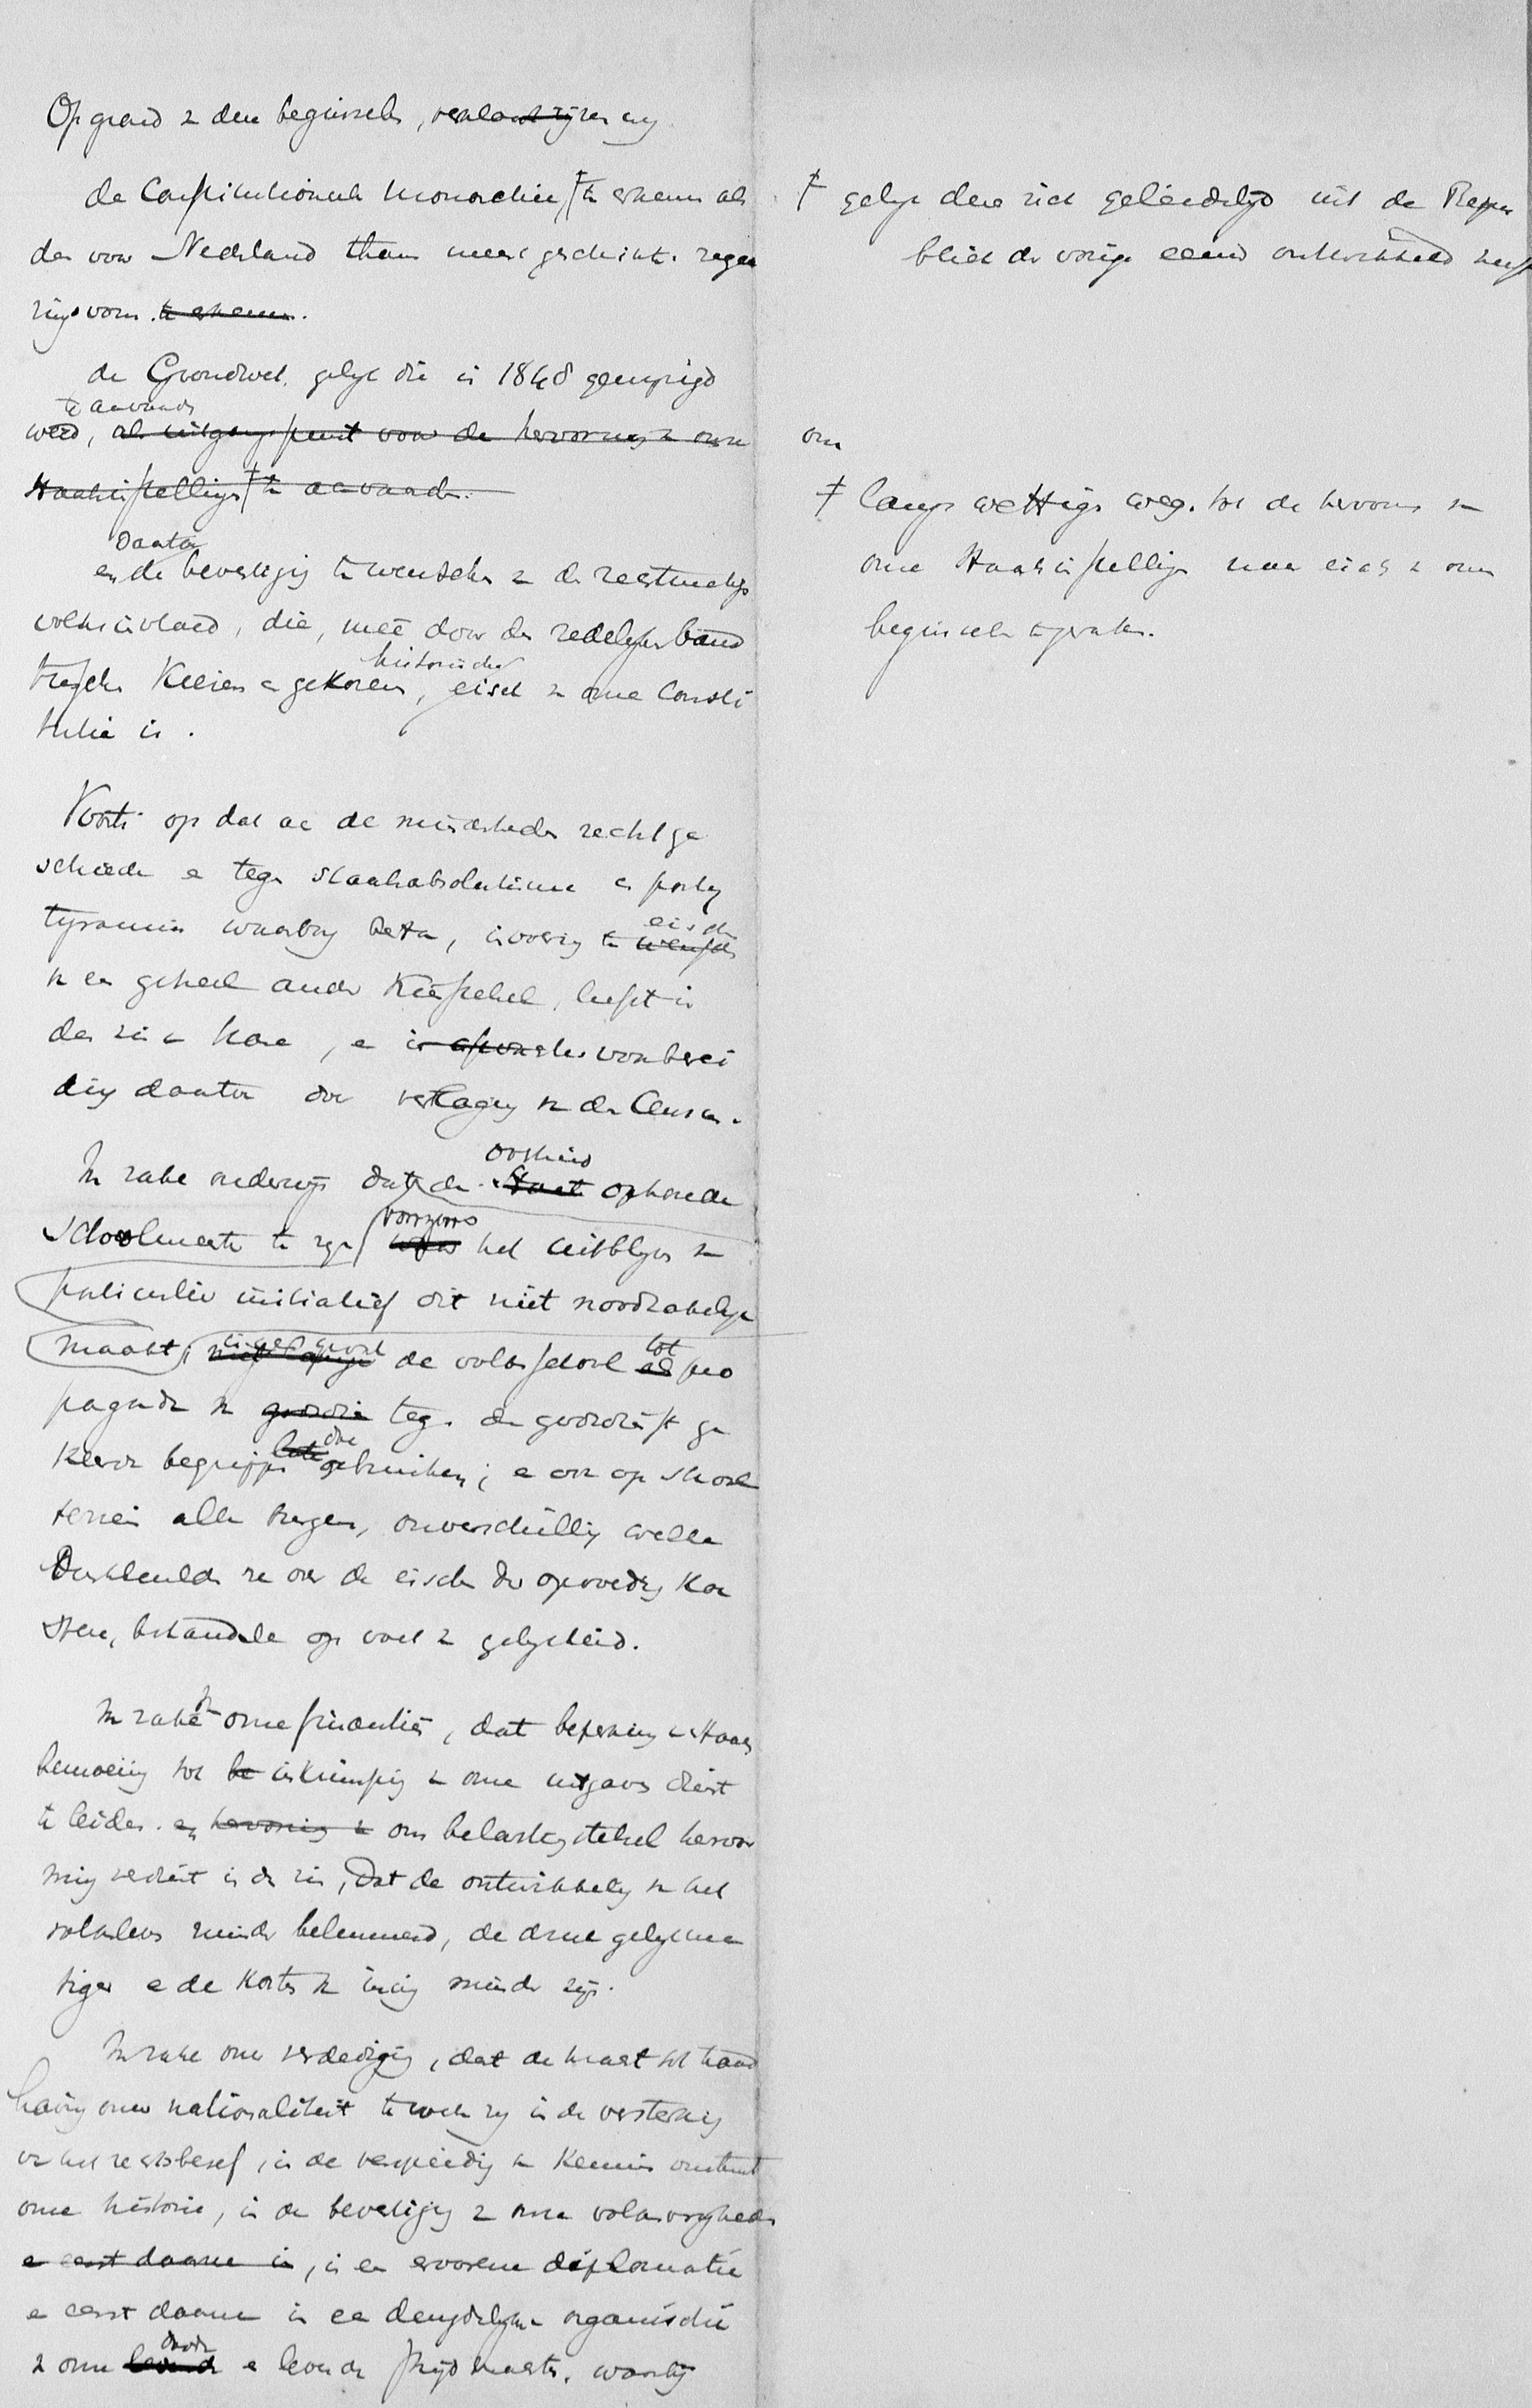 Op grond v den beginselen, verlangen wij
de Constitutioneele Monarchie, ‡ te erkennen als
den voor Nederland thans meest geschikte regee
ringsvorm. te erkennen.
de Grondwet, gelijk die in 1848 gewijzigd
te aanvaarden
werd, als uitgangspunt voor de hervorming v onze
Staatsinstellingen ‡ te aanvaarden.
daarta
en de bevestiging te wenschen v de rechtmatige
volksinvloed, die, meê door den zedelijken band
tusschen Kiezers en gekozen, historischen eisch v onze Consti
tutie is.
Voorts opdat ae de minderheden recht ge
schiede e tegen staatsabsolutisme en partij
tyrannie waarborg besta, invoering te eischen wenschen
v een geheel ander Kiesstelsel, liefst in
den zin v Hare, e in voorberei
ding daartoe door verlaging v den Census.
In zake onderwijs dat de Overheid Staat ophoude
schoolmeester te zijn voorzoover het uitblijven v
particulier initiatief dit niet noodzakelijk
maakt; de volksschool tot als pro
paganda v godsdie tegen de godsdienst ge
keerde begrippen late doe gebruiken; e ook op school
terrein alle burgers, onverschillig welke
Denkbeelden ze over de eischen der opvoeding koe
steren, behandele op voet v gelijkheid.
In zake v onze financiën, dat beperking v Staats
bemoeiing tot be inkrimping v onze uitgaven dient
te leiden. en hervorming v ons belastingstelsel hervor
ming verdient in den zin, dat de ontwikkeling v het
volksleven minder belemmerd, de druk gelijkma
tiger e de kosten v inning minder zijn.
In zake onze verdediging, dat de kracht tot hand
having onzer nationaliteit te zoeken zij in de versterking
van het rechtsbesef, in de verspreiding v kennis omtrent
onze historie, in de bevestiging v onze volksvrijheden
e eerst daarna in, in een ervarene diplomatie
e eerst daarna in een deugdelijke organisatie
v onze doode levende e levende strijdkrachten, waarbij
‡ gelijk deze zich geleidelijk uit de Repu
bliek der vorige eeuw ontwikkeld heeft
om
‡ langs wettigen weg. tot de hervorming v
onze Staatsinstellingen naar eisch v onze
beginselen te geraken.